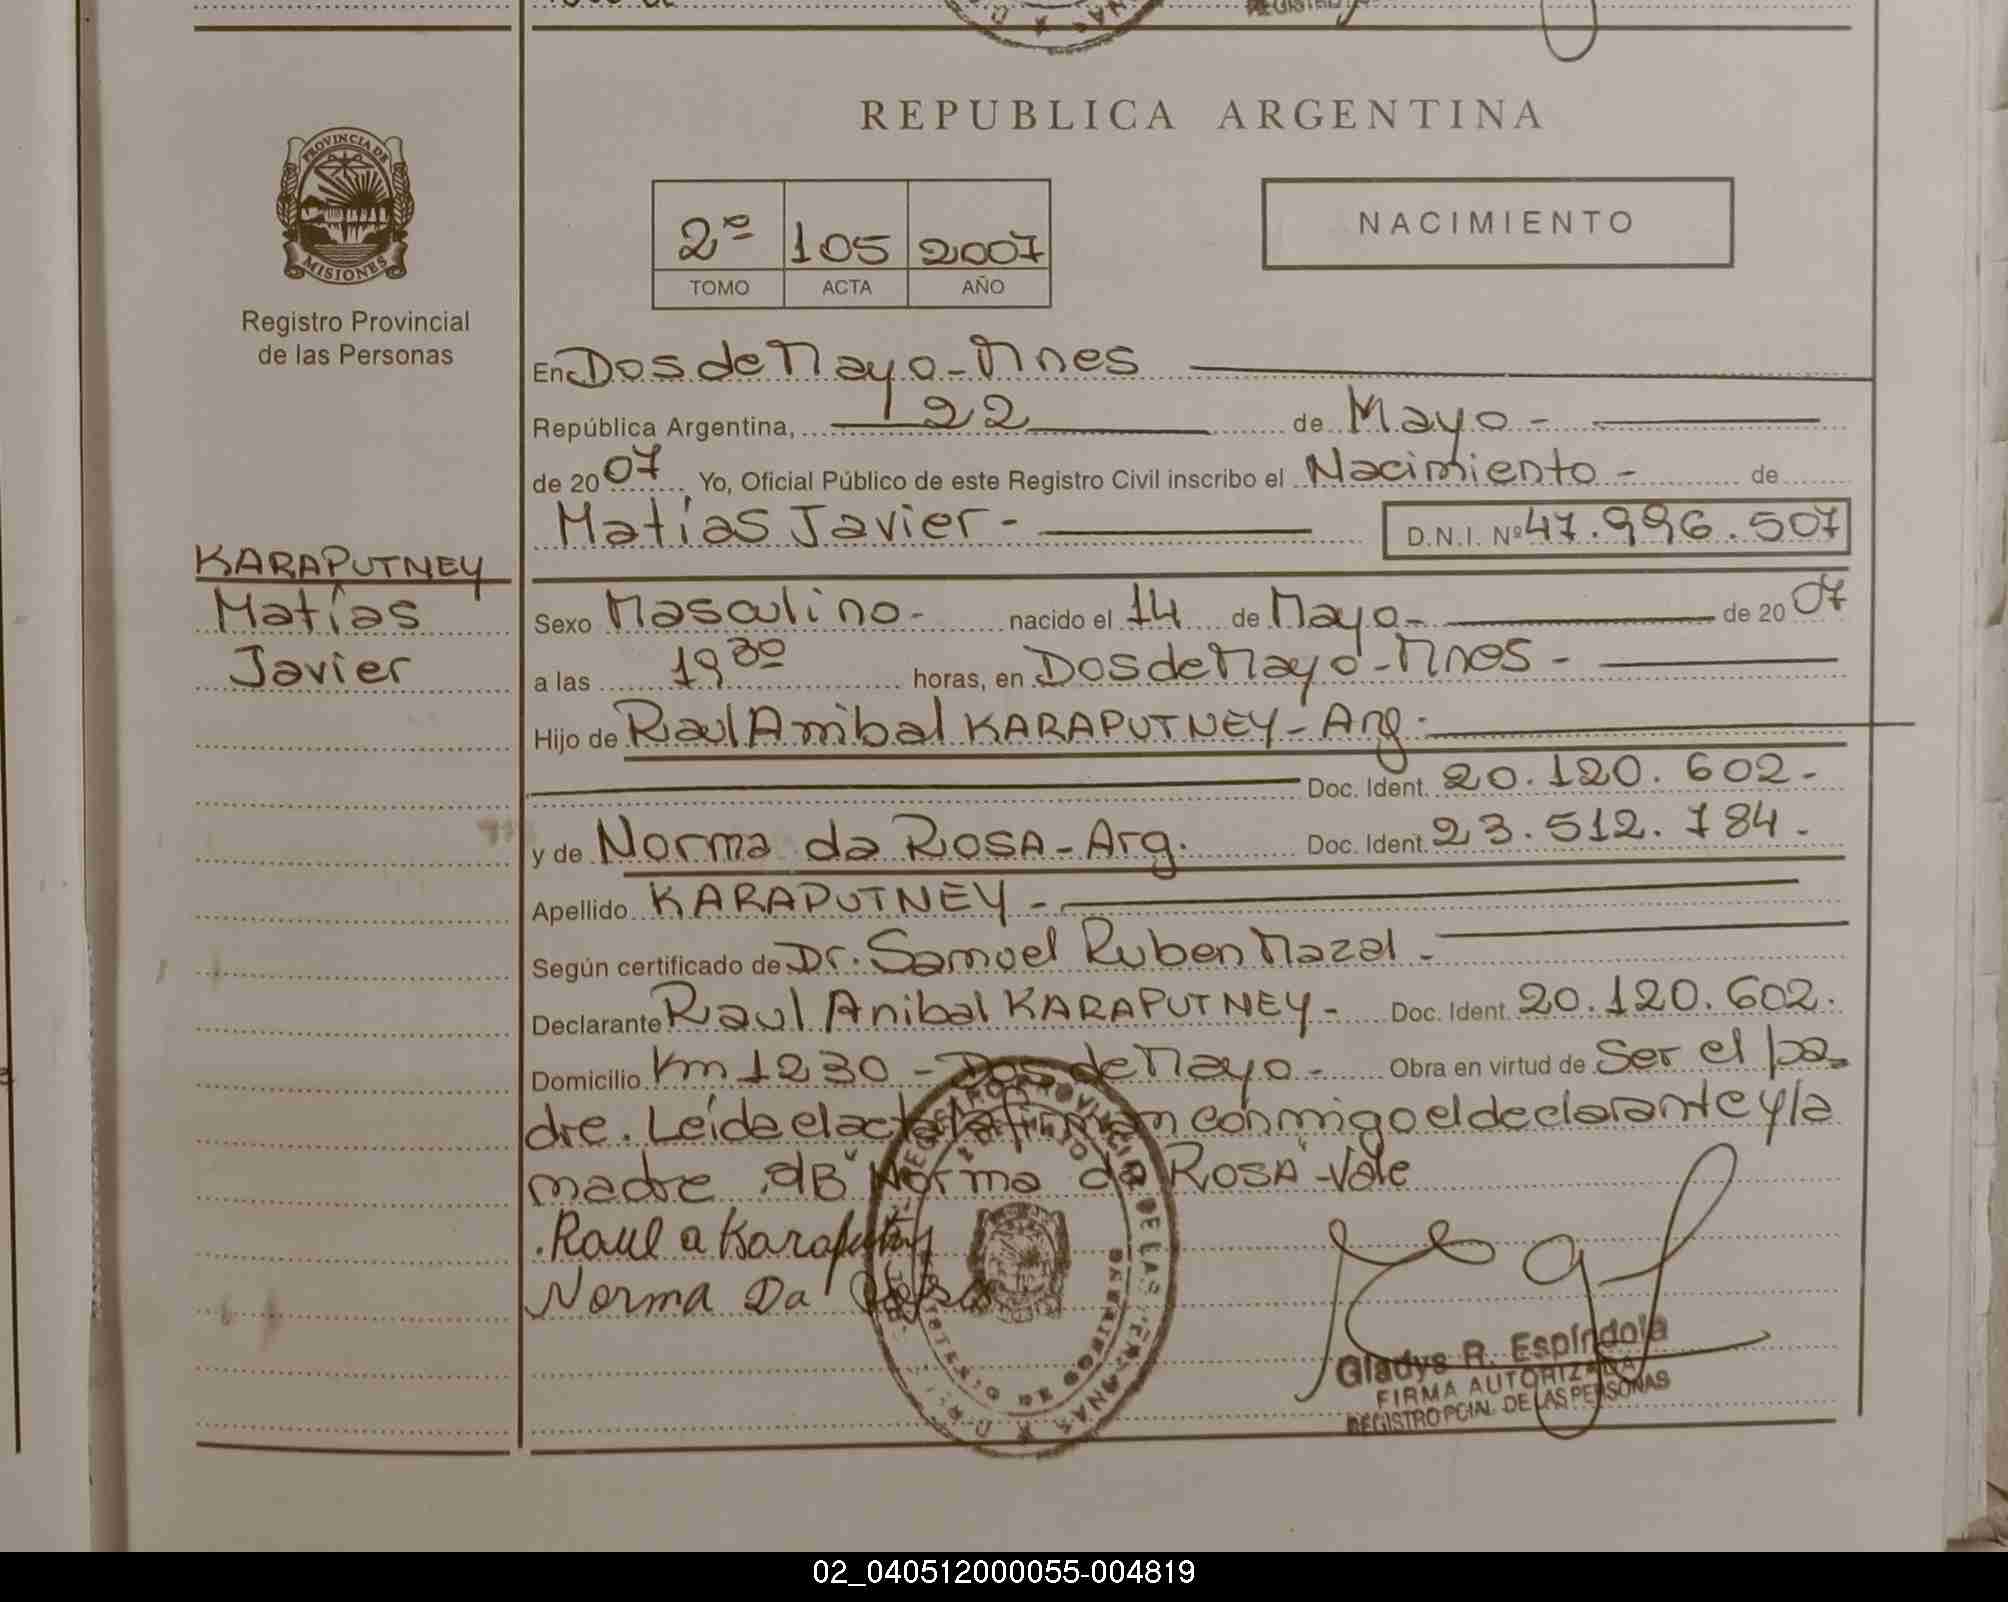 REPUBLICA ARGENTINA
PROVINCIA DE
MISIONES
Registro Provincial
de las Personas
2º 105 2007
TOMO ACTA AÑO
NACIMIENTO
En Dos de Mayo - Mnes
República Argentina, 22 de Mayo -
de 2007, Yo, Oficial Público de este Registro Civil inscribo el Nacimiento - de
Matías Javier - D.N.I. Nº 47.996.507
KARAPUTNEY
Matías
Javier
Sexo Masculino - nacido el 14 de Mayo - de 2007
a las 19 30 horas, en Dos de Mayo - Mnes -
Hijo de Raul Anibal KARAPUTNEY - Arg.
Doc. Ident. 20.120.602.-
y de Norma da ROSA - Arg. Doc. Ident. 23.512.784.-
Apellido KARAPUTNEY -
Según certificado de Dr. Samuel Ruben Mazal -
Declarante Raul Anibal KARAPUTNEY - Doc. Ident. 20.120.602.
Domicilio Km 1230 - Dos de Mayo - Obra en virtud de Ser el pa-
dre. Leída el acta la firman conmigo el declarante y la
madre. "Norma da ROSA" - Vale
Raul a Karaputney
Norma Da Rosa
Gladys R. Espíndola
FIRMA AUTORIZADA
REGISTRO PCIAL. DE LAS PERSONAS
02_040512000055-004819